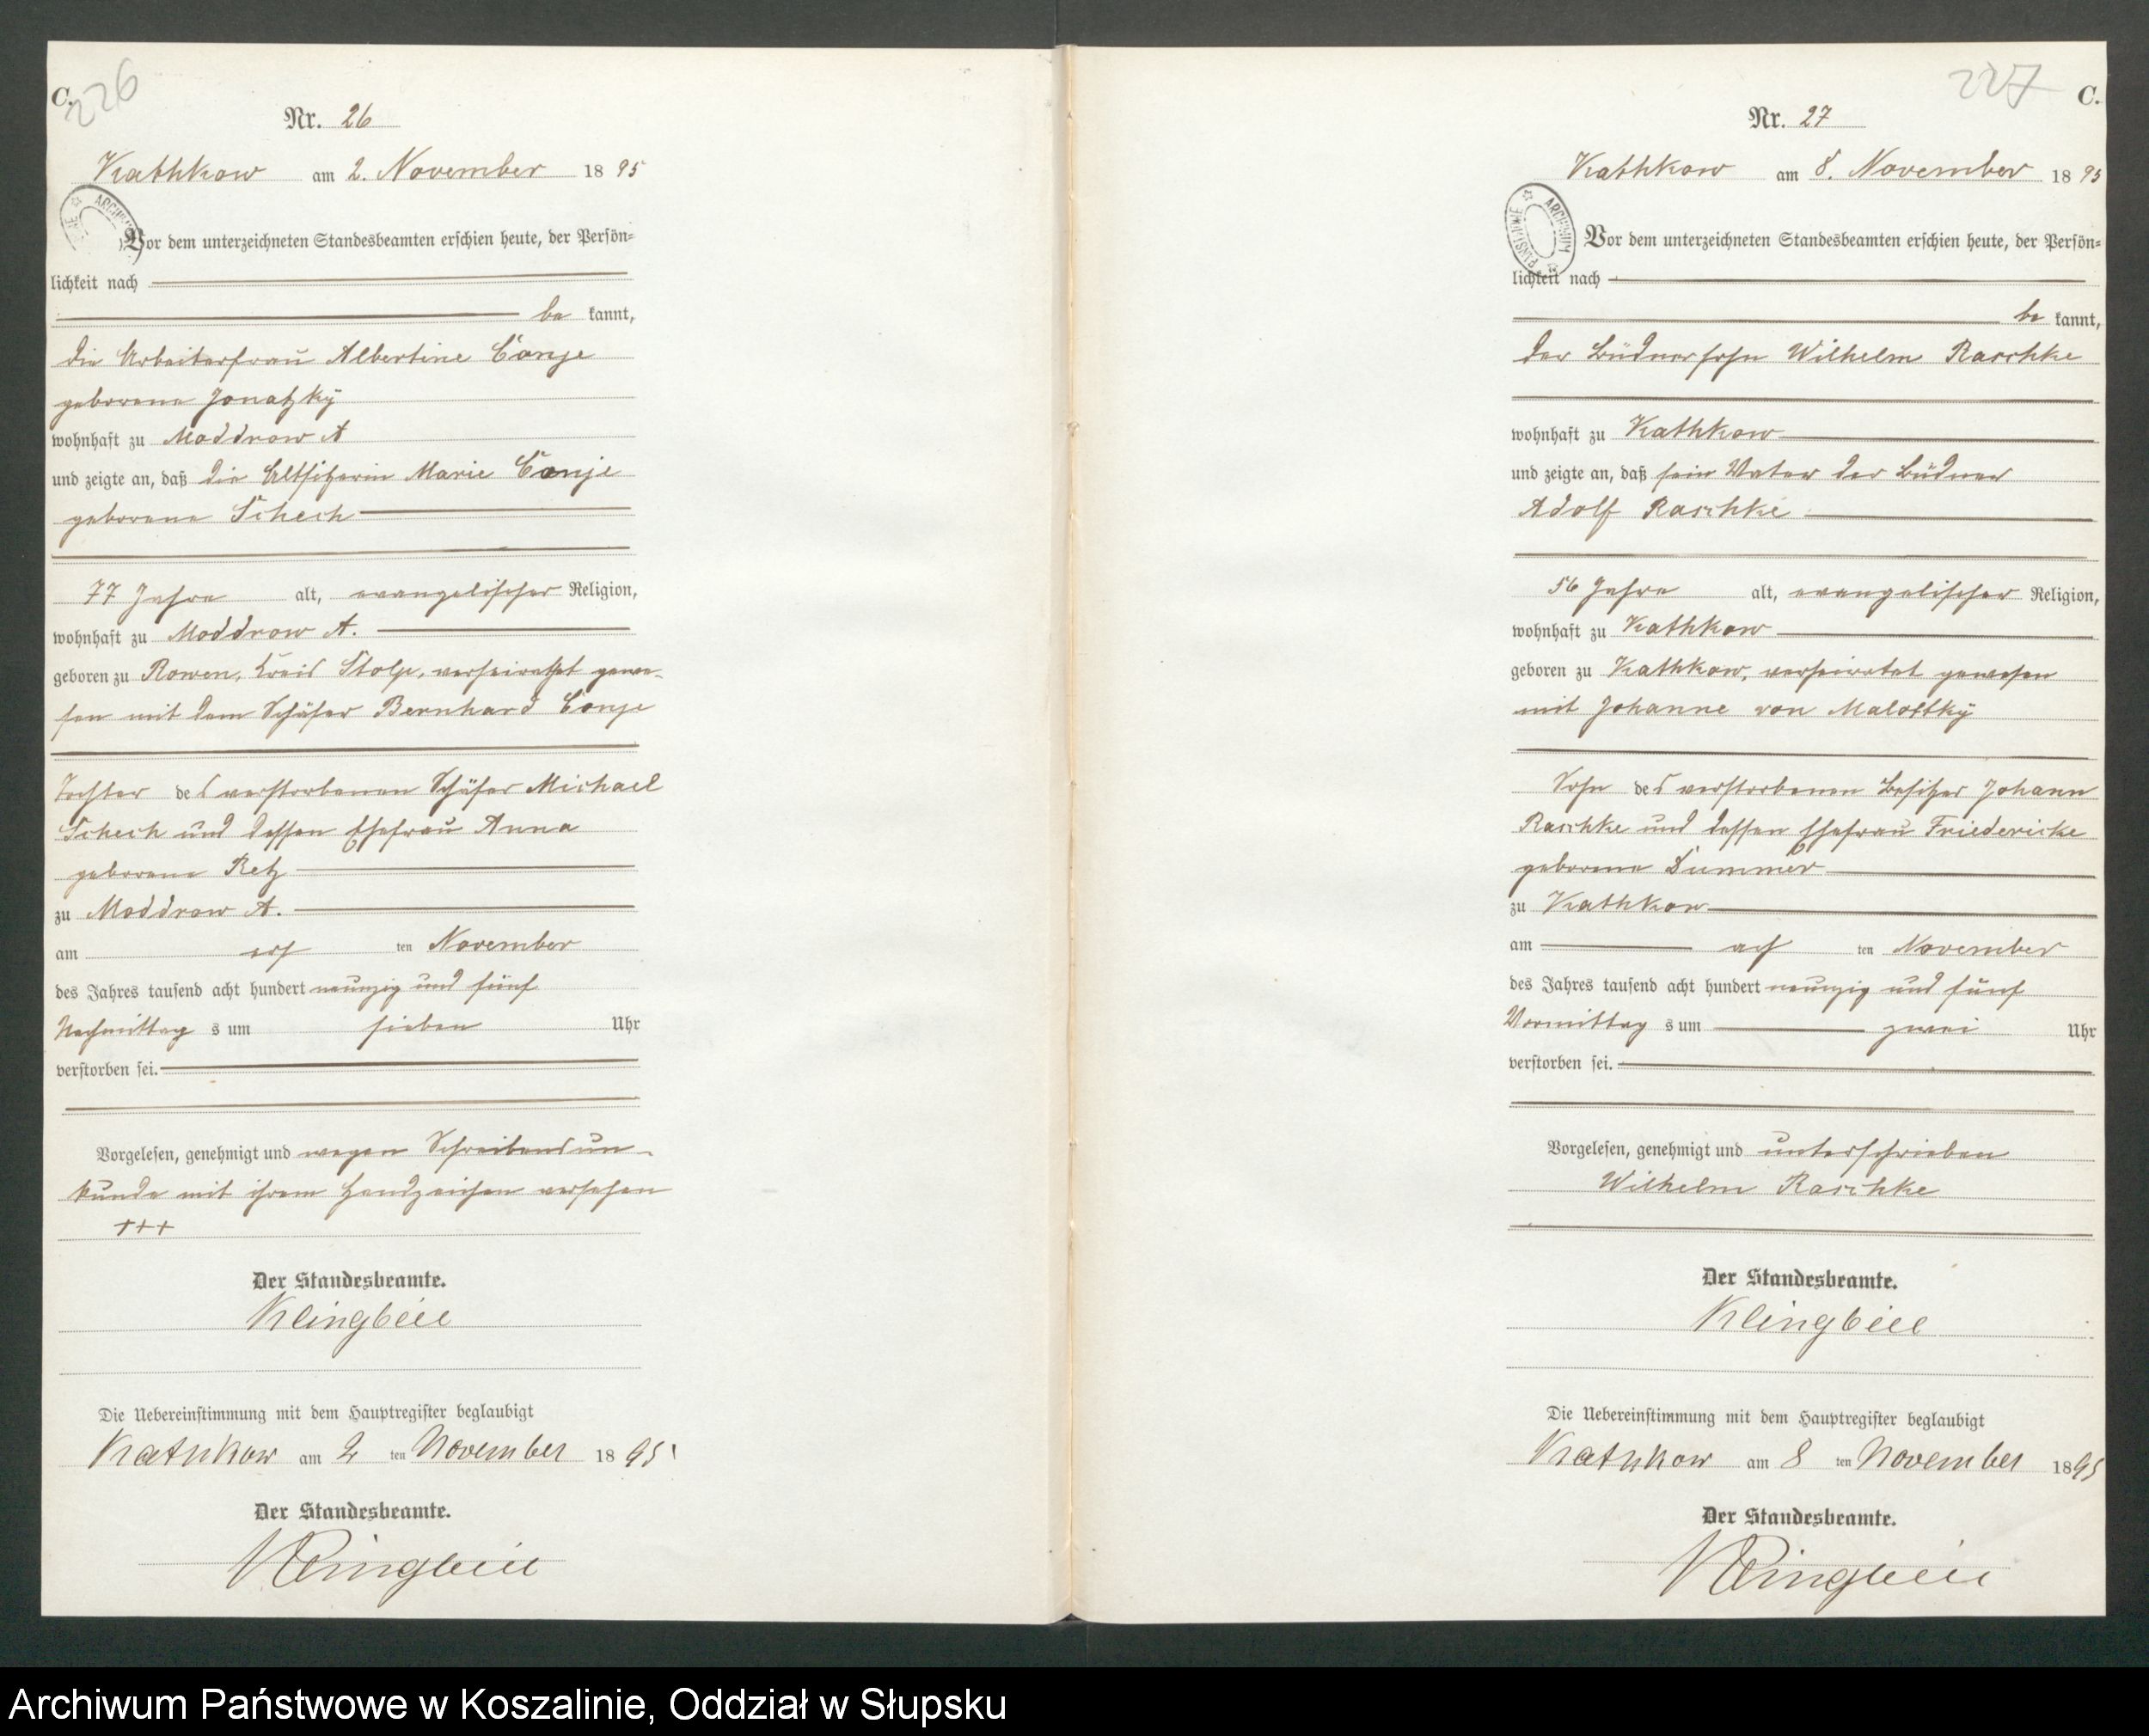 C.
226
Nr. 26
Kathkow am 2. November 1895
Vor dem unterzeichneten Standesbeamten erschien heute, der Persön=
lichkeit nach
be kannt,
die Arbeiterfrau Albertine Conje
geborene Jonatzky
wohnhaft zu Moddrow A
und zeigte an, daß die Altsitzerin Marie Conje
geborene Schech
77 Jahre alt, evangelischer Religion,
wohnhaft zu Moddrow A.
geboren zu Rowen, Kreis Stolp, verheirathet gewe-
sen mit dem Schäfer Bernhard Conje
Tochter des verstorbenen Schäfer Michael
Schech und dessen Ehefrau Anna
geborene Retz
zu Moddrow A.
am ers ten November
des Jahres tausend acht hundert neunzig und fünf
Nachmittag s um sieben Uhr
verstorben sei.
Vorgelesen, genehmigt und wegen Schreibensun-
kunde mit ihrem Handzeichen versehen
+++
Der Standesbeamte.
Klingbeil
Die Uebereinstimmung mit dem Hauptregister beglaubigt
Kathkow am 2 ten November 1895
Der Standesbeamte.
Klingbeil
227
C.
Nr. 27
Kathkow am 8. November 1895
ARCHIWUM PAŃSTWOWE
Vor dem unterzeichneten Standesbeamten erschien heute, der Persön=
lichkeit nach
be kannt,
der Büdnersohn Wilhelm Raschke
wohnhaft zu Kathkow
und zeigte an, daß sein Vater der Büdner
Adolf Raschke
56 Jahre alt, evangelischer Religion,
wohnhaft zu Kathkow
geboren zu Kathkow, verheiratet gewesen
mit Johanne von Malottky
Sohn des verstorbenen Besitzer Johann
Raschke und dessen Ehefrau Friedericke
geborene Dummer
zu Kathkow
am ach ten November
des Jahres tausend acht hundert neunzig und fünf
Vormittag s um zwei Uhr
verstorben sei.
Vorgelesen, genehmigt und unterschrieben
Wilhelm Raschke
Der Standesbeamte.
Klingbeil
Die Uebereinstimmung mit dem Hauptregister beglaubigt
Kathkow am 8 ten November 1895
Der Standesbeamte.
Klingbeil
Archiwum Państwowe w Koszalinie, Oddział w Słupsku